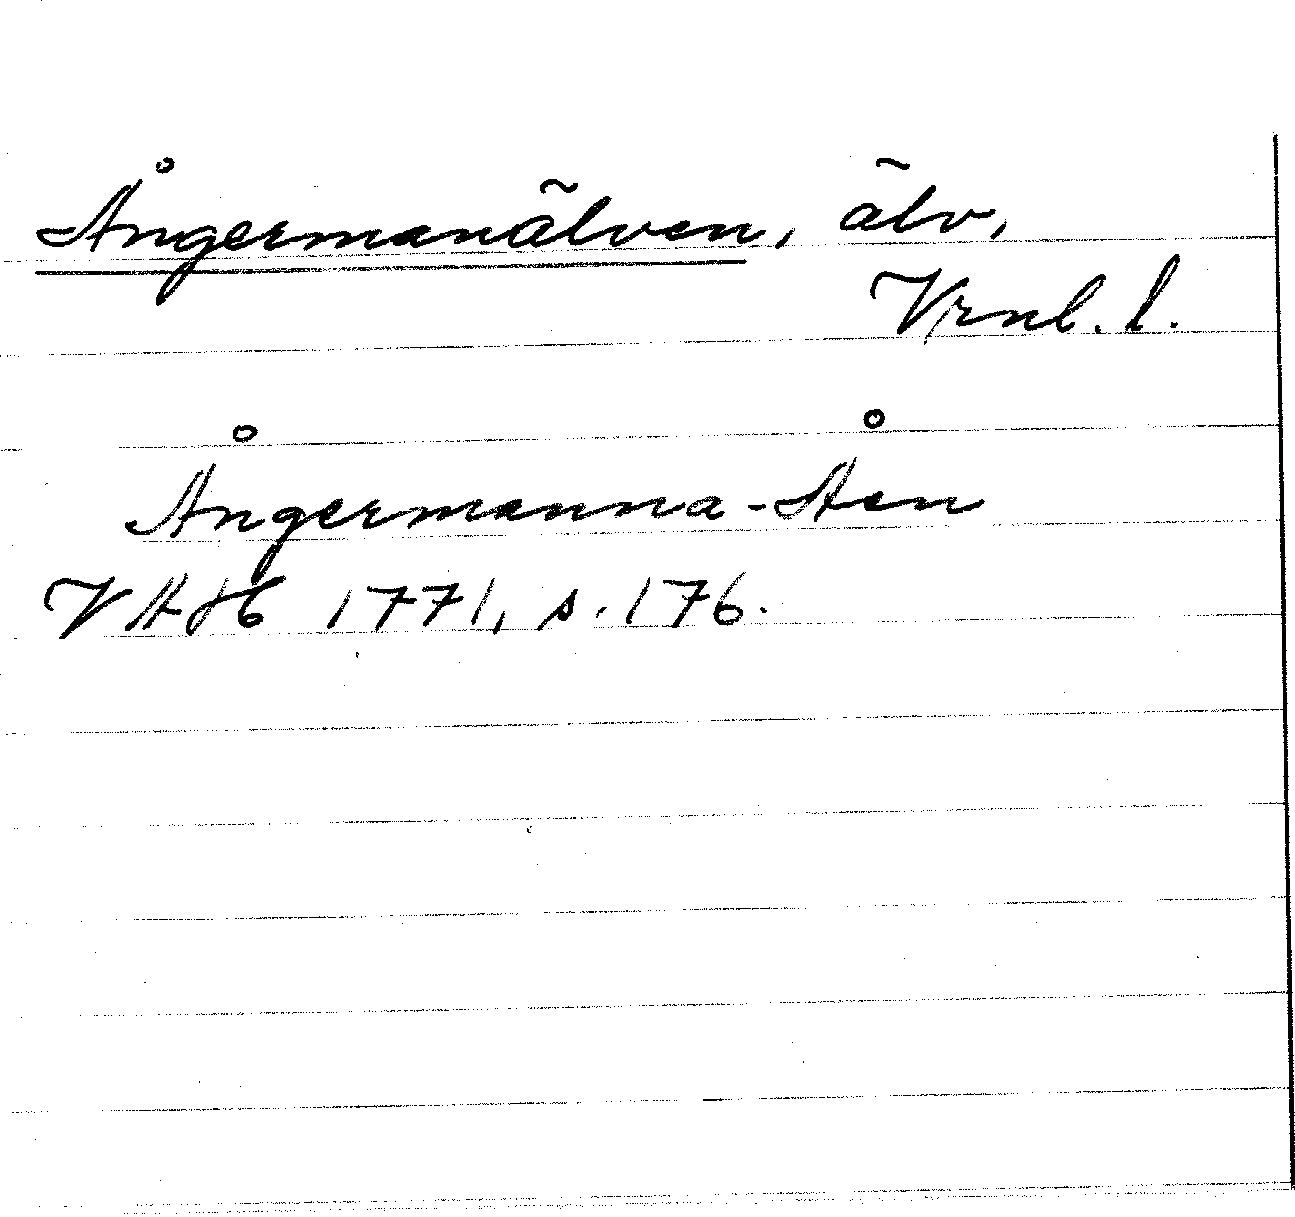 Ångermanälven, älv,
Vrnl. l.
Ångermanna-Åen
VAH 1771, s. 176.